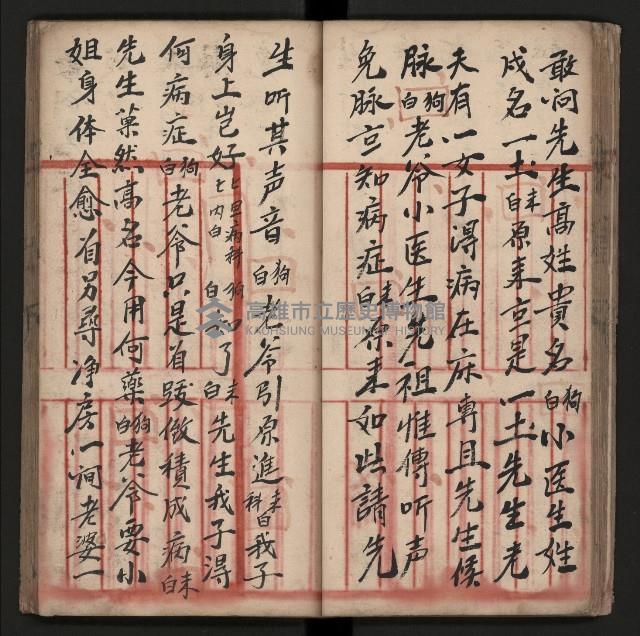 敢问先生高姓貴名狗白小医生姓
成名一土末白原来亦是一土先生老
夫有一女子淂病在床専且先生候
脉狗白老爷小医生先祖惟傳听声
免脉亦知病症末白原来如此請先
生听其声音狗白老爷引原進末科白我子
身上岂好七内白狗白知了末白先生我子淂
何病症狗白老爷只是首跋傲積成病末白
先生菓然高名今用何藥狗白老爷要小
姐身体全愈首另尋净房一间老婆一
高雄市立歷史博物館
KAOHSIUNG MUSEUM OF HISTORY